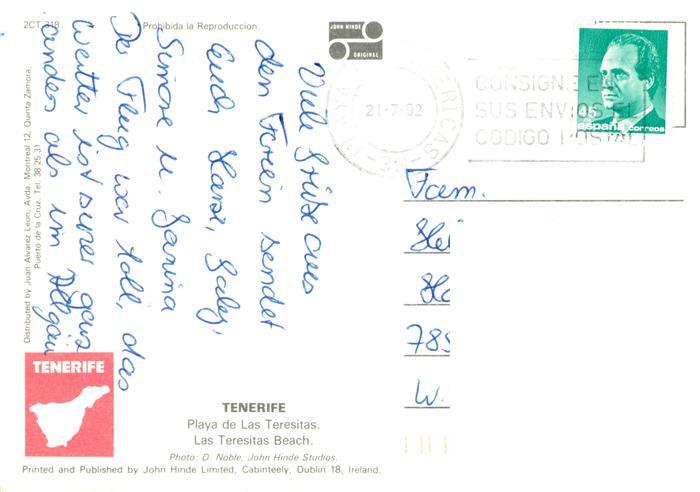 2CT 318
Prohibida la Reproduccion.
JOHN HINDE
ORIGINAL
21-7-92
38
CONSIGNE EN
SUS ENVIOS EL
CODIGO POSTAL
45
españa correos
Viele Grüße aus
den Ferien sendet
Euch
Simone u.
Der Flug war toll, das
Wetter ist super ganz
anders als im Allgäu
Fam.
785
W.
Distributed by Juan Alvarez Leon, Avda. Montreal 12, Quinta Zamora,
Puerto de la Cruz. Tel. 38 25 31
TENERIFE
TENERIFE
Playa de Las Teresitas.
Las Teresitas Beach.
Photo: D. Noble, John Hinde Studios.
Printed and Published by John Hinde Limited, Cabinteely, Dublin 18, Ireland.